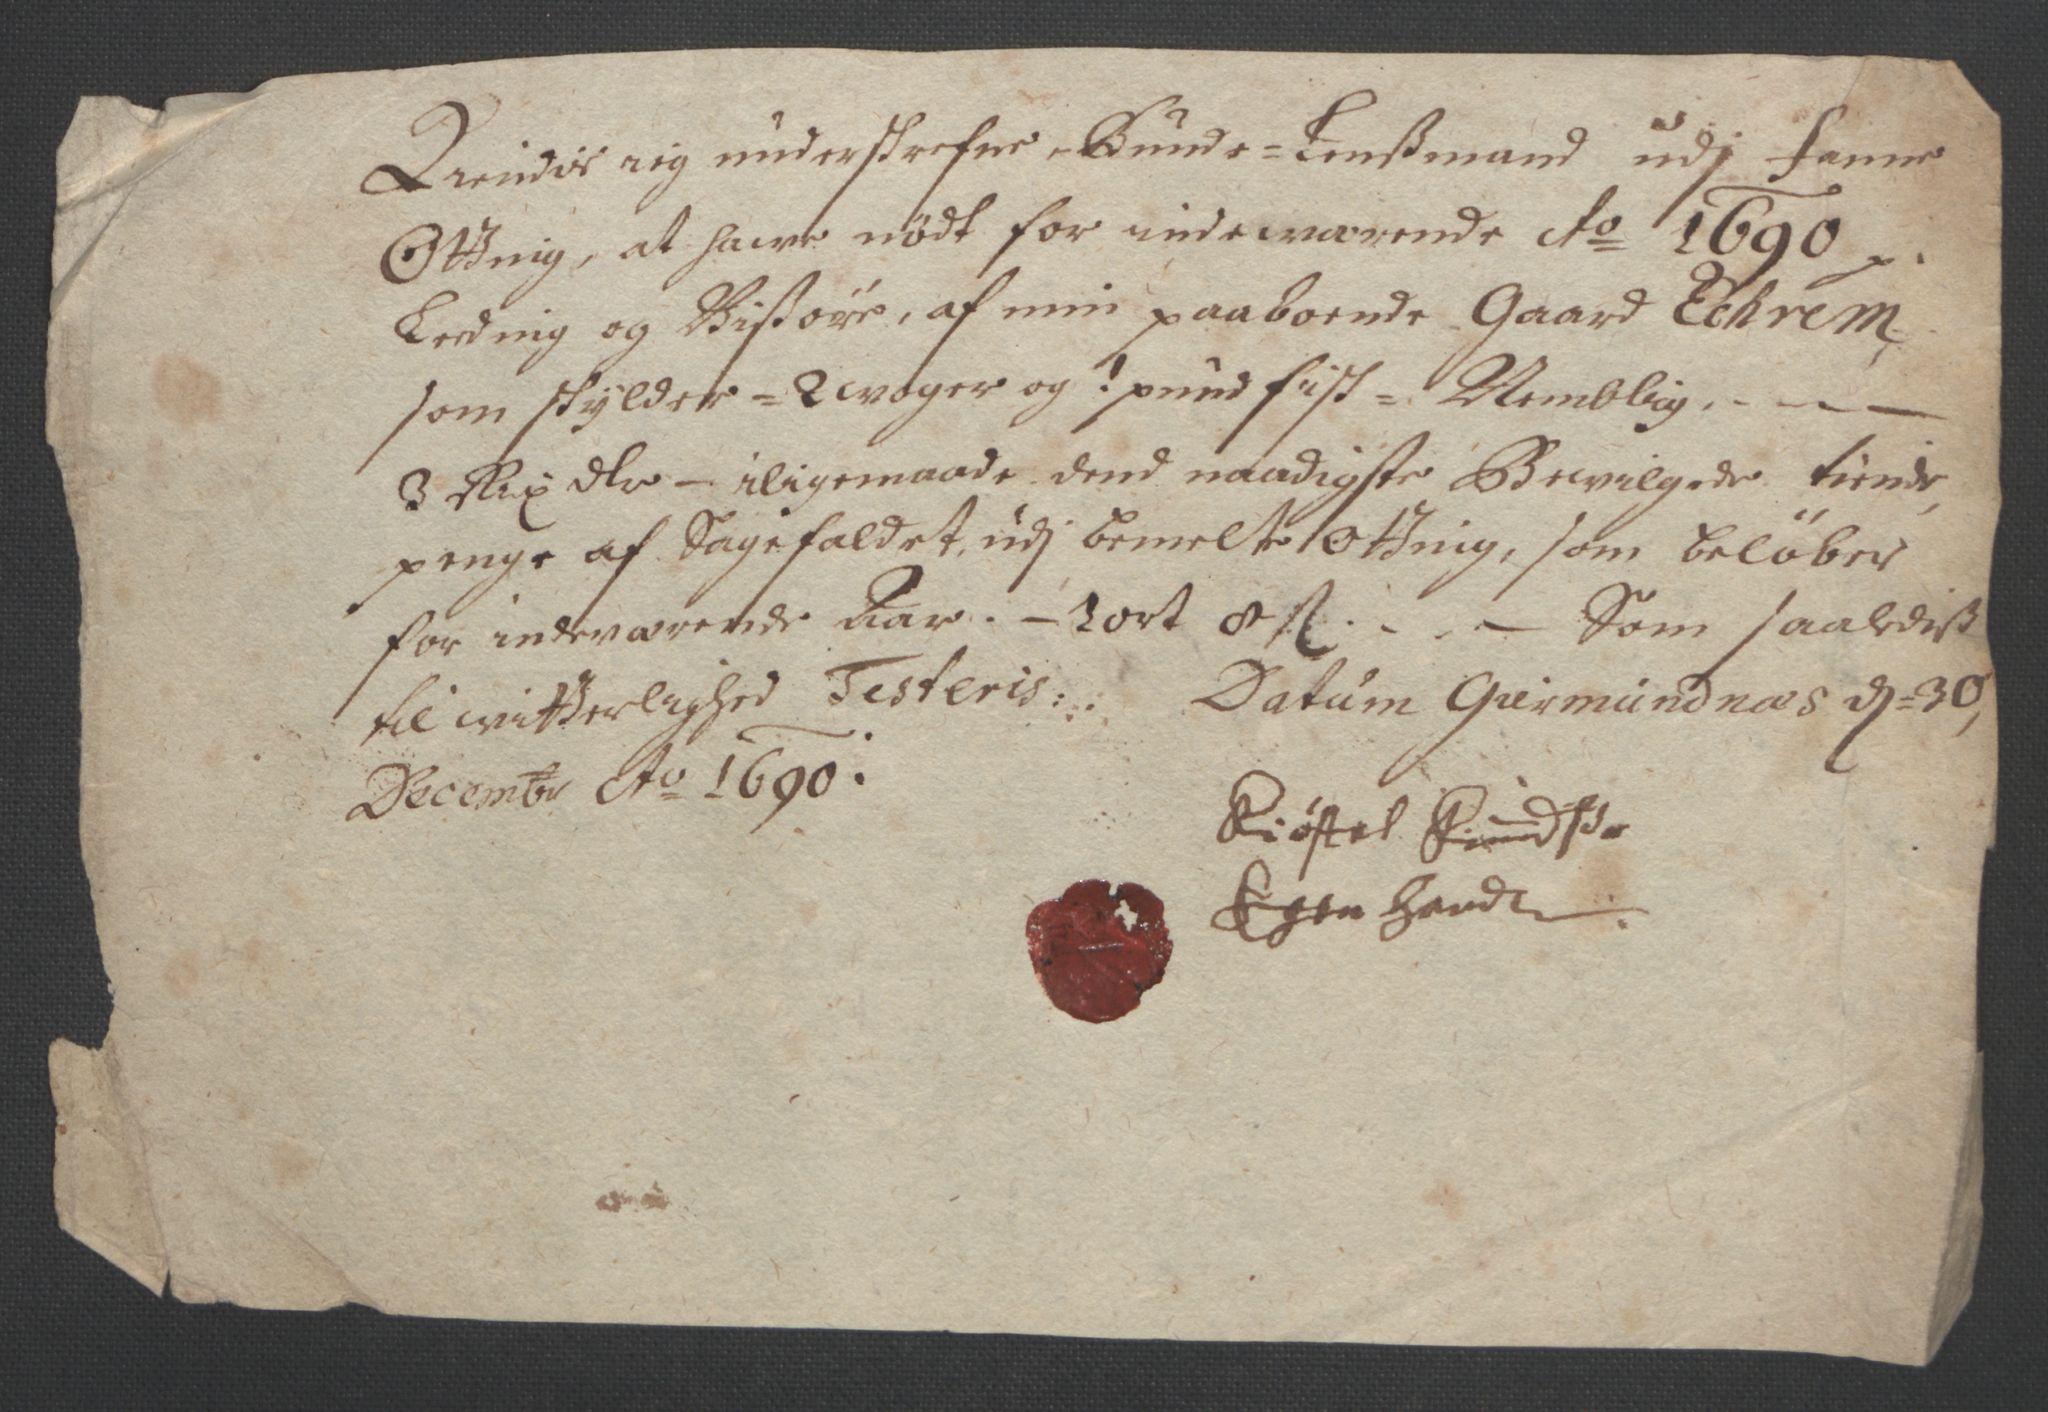 Kiendis ieg underskrefne Bunde-Lenßmand udj fanne
Otting, at hawe nödt for indewærende Ao 1690
Leding og Wißøre, af min paaboende Gaard Eckrem,
som skÿlder = 2 woger og 1 pund fisk = Nemblig. - - -
3 Rix dlr - iligemaade dend naadigste Bewilgede tiende,
penge af Sagefaldet, udj bemelte Otting, som belöber
for indeværende Aar. - 1 ort 8 ß. - - - Som saaledis
til witterlighed Testeris :. Datum Giermundnæs d. 30,
Decembr Ao 1690.
Kiøstel Knudßø
Egen handt